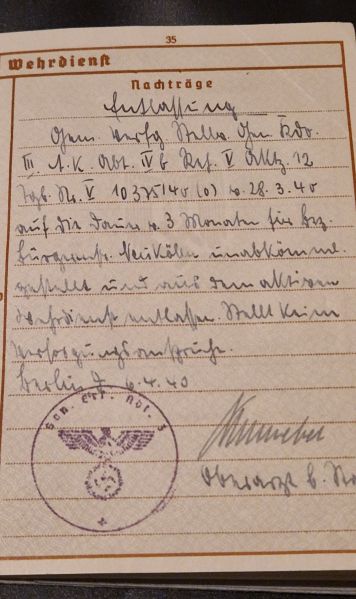 35
Wehrdienst
Nachträge
Entlassung
Gem. Verfg Stellv. Gen. Kdo.
III A.K. Abt. IV b Ref. V Aktz. 12
Tgb. Nr. V 10375/40 (o) v. 28.3.40
auf die Dauer v. 3 Monaten für Bez.
Bürgermstr. Neukölln unabkömml.
gestellt und aus dem aktiven
Wehrdienst entlassen. Stellt keine
Versorgungsansprüche.
Berlin, 6.4.40
San. Ers. Abt. 3
Oberarzt b.